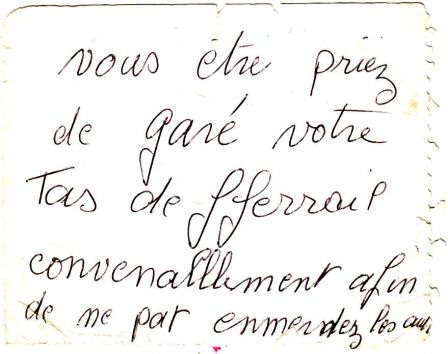 vous être priez
de garé votre
Tas de fferrail
convenalllement afin
de ne pat enmerdez les aut